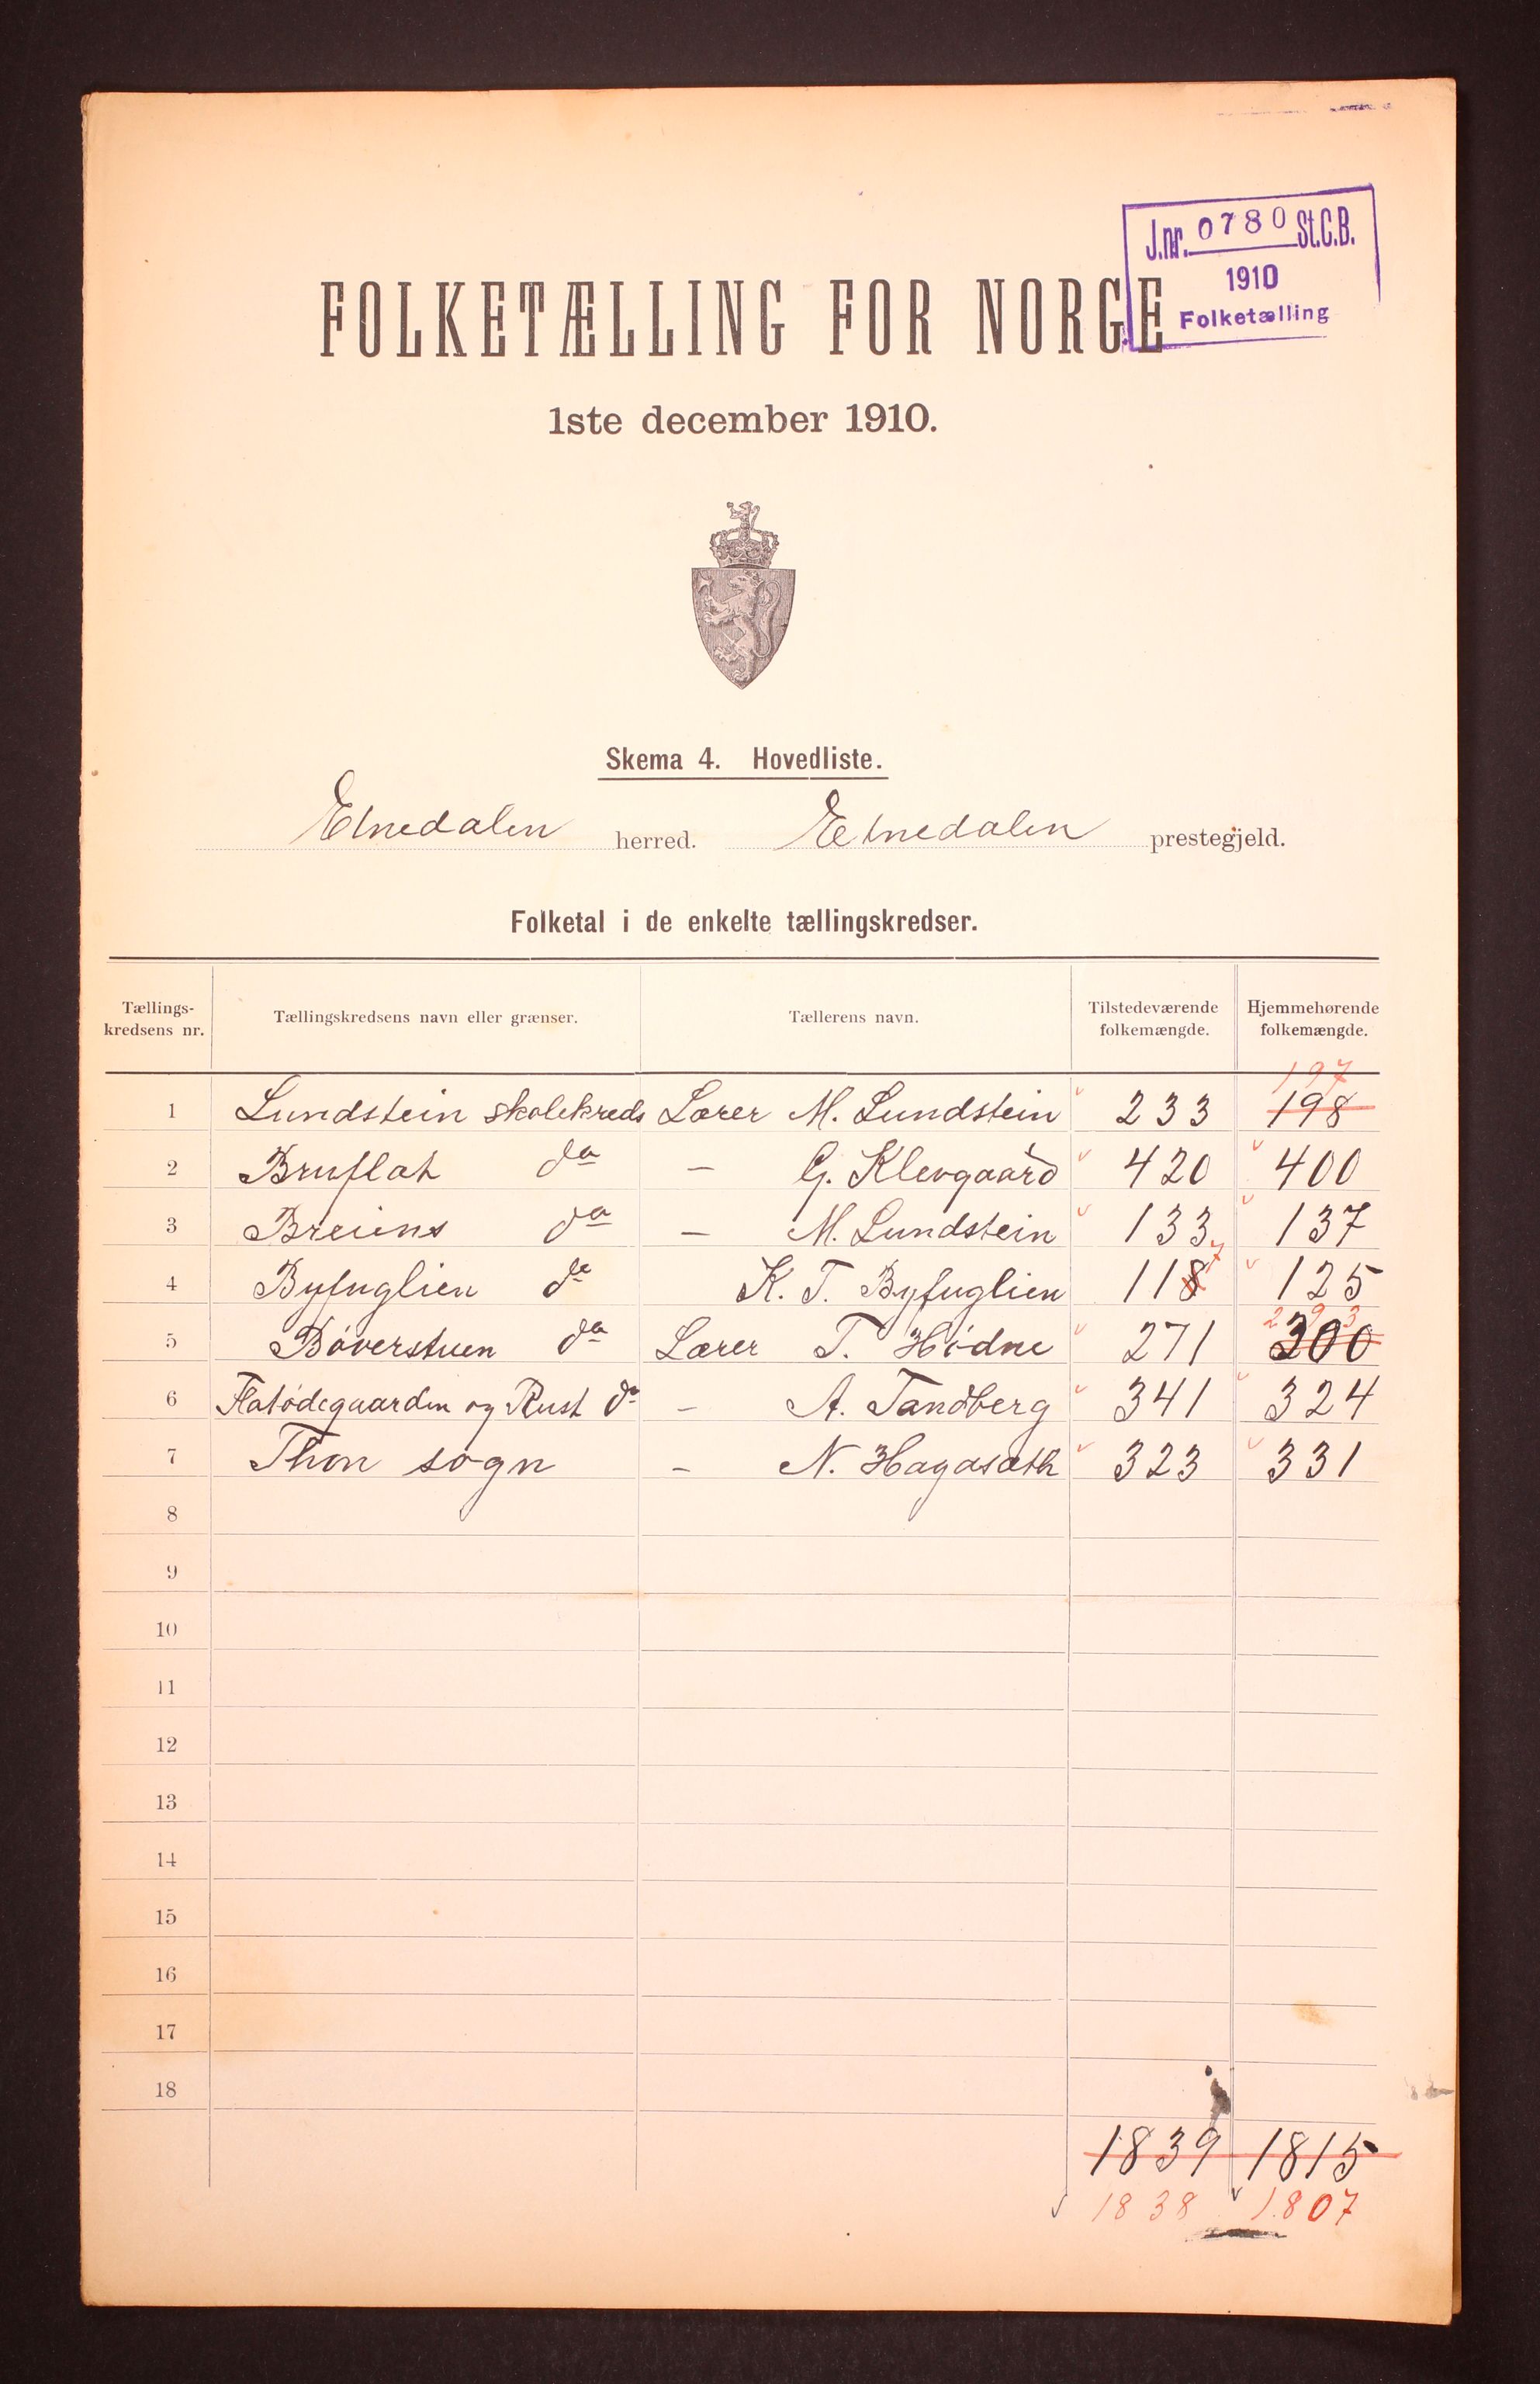 J.nr. 0780 St.C.B.
1910
Folketælling
FOLKETÆLLING FOR NORGE
1ste december 1910.
Skema 4. Hovedliste.
Etnedalen herred. Etnedalen prestegjeld.
Folketal i de enkelte tællingskredser.
Tællings-kredsens nr. Tællingskredsens navn eller grænser. Tællerens navn. Tilstedeværende folkemængde. Hjemmehørende folkemængde.
197
1 Lundstein skolekreds Lærer M. Lundstein 233 198
2 Bruflat do — G. Klevgaard 420 400
3 Breiens do — M. Lundstein 133 137
4 Byfuglien do K. T. Byfuglien 118 7 125
293
5 Bøverstuen do Lærer T. Hødne 271 300
6 Flatødegaarden og Rust do — A. Tandberg 341 324
7 Thon sogn — N. Hagasæth 323 331
8
9
10
11
12
13
14
15
16
17
18
1839 1815
1838 1807